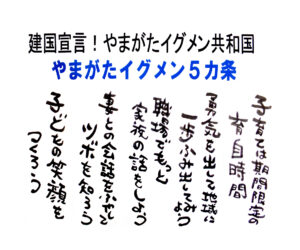 建国宣言！やまがたイグメン共和国
やまがたイグメン５カ条
子育ては期間限定の
有自時間
勇気を出して地域に
一歩ふみ出してみよう
職場でもっと
家族の話をしよう
妻との会話をふやして
ツボを知ろう
子どもの笑顔を
つくろう